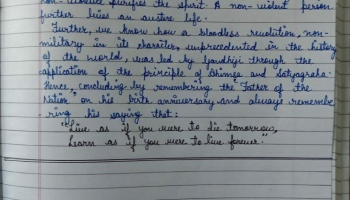 non-violence purifies the spirit. A non-violent person
further lives an austere life.
Further, we know how a bloodless revolution, non-
military in its character, unprecedented in the history
of the world, was led by Gandhiji through the
application of the principle of Ahimsa and Satyagraha.
Hence, concluding by remembering the Father of the
Nation, on his birth anniversary and always remembe
-ring his saying that:
"Live as if you were to die tomorrow,
Learn as if you were to live forever."